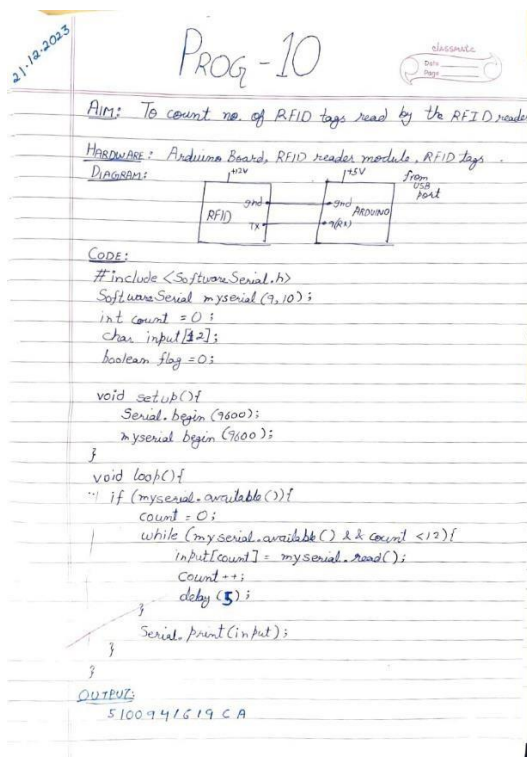 21.12.2023
PROG-10
classmate
Date
Page
AIM: To count no. of RFID tags read by the RFID reader
HARDWARE: Arduino Board, RFID reader module, RFID tags.
DIAGRAM:
+12V
+5V
from USB port
RFID
gnd
gnd
ARDUINO
TX
9(RX)
CODE:
#include <SoftwareSerial.h>
SoftwareSerial myserial (9,10);
int count = 0;
char input[12];
boolean flag = 0;
void setup(){
Serial.begin (9600);
myserial begin (9600);
}
void loop(){
if (myserial.available()){
count = 0;
while (myserial.available() && count <12){
input[count] = myserial.read();
Count++;
delay (5);
}
Serial.print(input);
}
}
OUTPUT:
5100941619CA